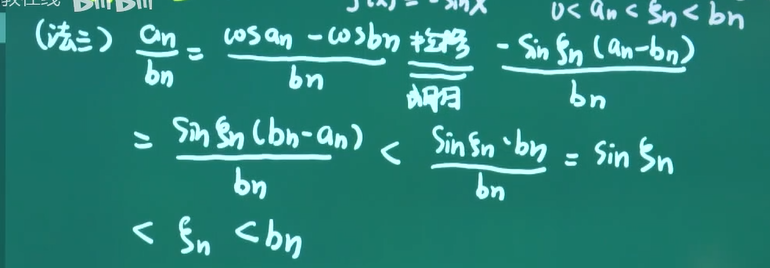 教在线 bilibili f(x) = -sinx 0 < an < ξn < bn
(法三) an/bn = (cos an - cos bn)/bn 拉格朗日 = -sin ξn (an-bn)/bn
= sin ξn (bn-an)/bn < sin ξn · bn/bn = sin ξn
< ξn < bn